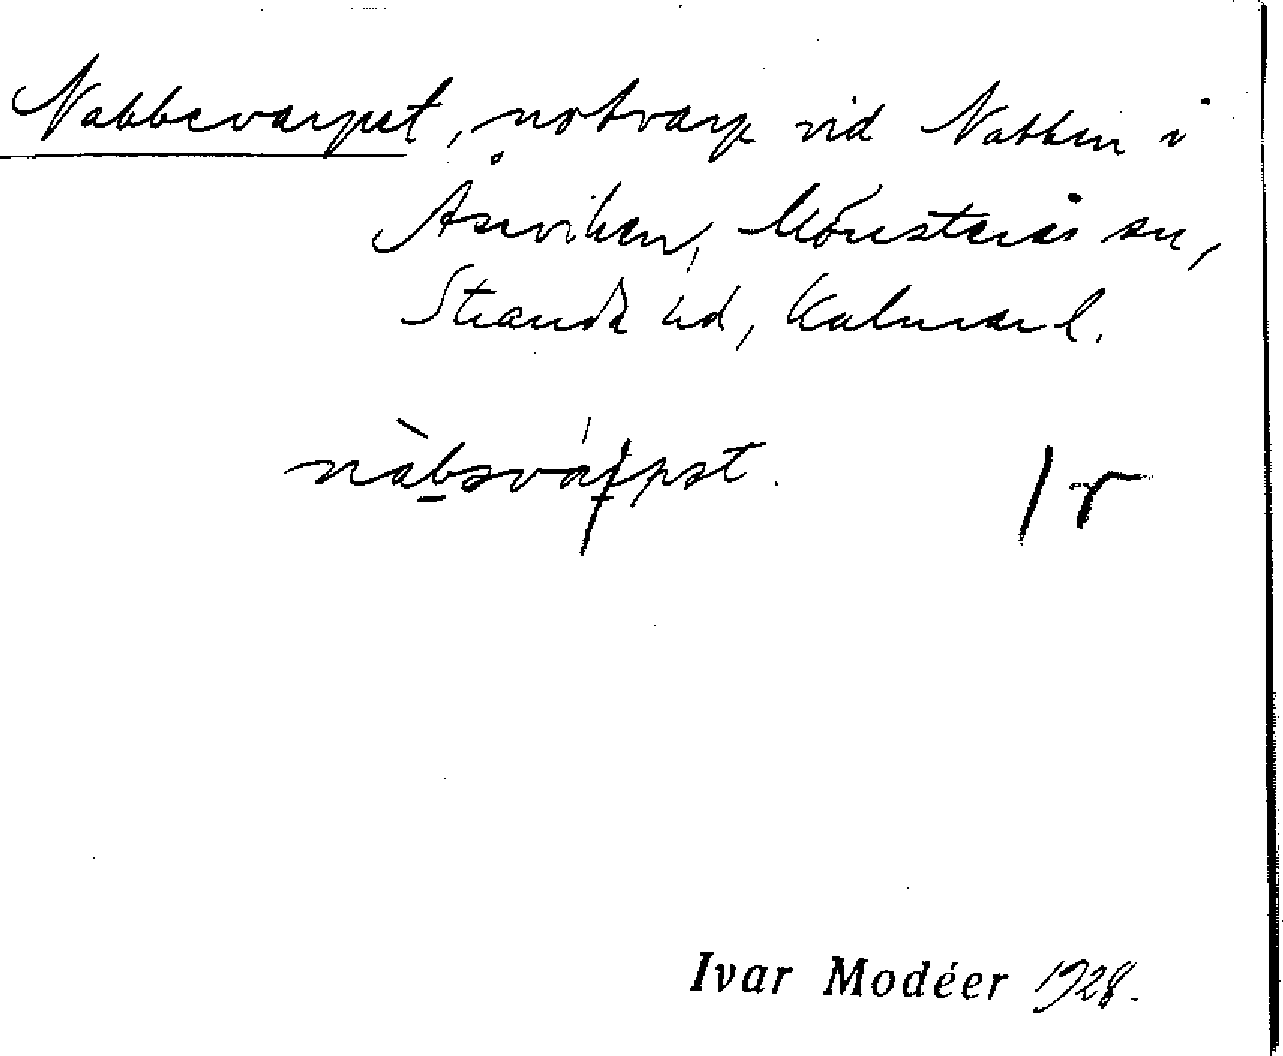 Nabbevarpet, notvarp vid Nabben i
Åseviken, Mönsterås sn,
Stranda hd, Kalmar l.
Ivar Modéer 1928.